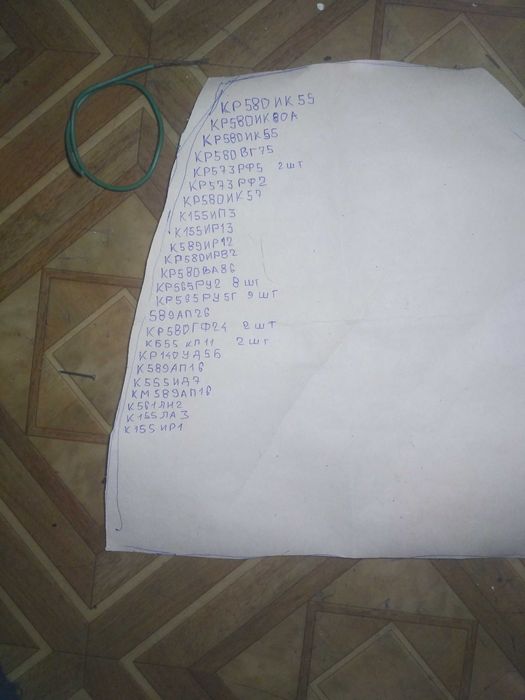 КР580ИК55
КР580ИК80А
КР580ИК55
КР580ВГ75
КР573РФ5 2шт
КР573РФ2
КР580ИК57
К155ИП3
К155ИР13
К589ИР12
КР580ИР82
КР580ВА86
КР565РУ2 8шт
КР565РУ5Г 9шт
589АП26
КР580ГФ24 2шт
К555КП11 2шт
КР140УД5Б
К589АП16
К555ИД7
КМ589АП16
К561ЛН2
К155ЛА3
К155ИР1